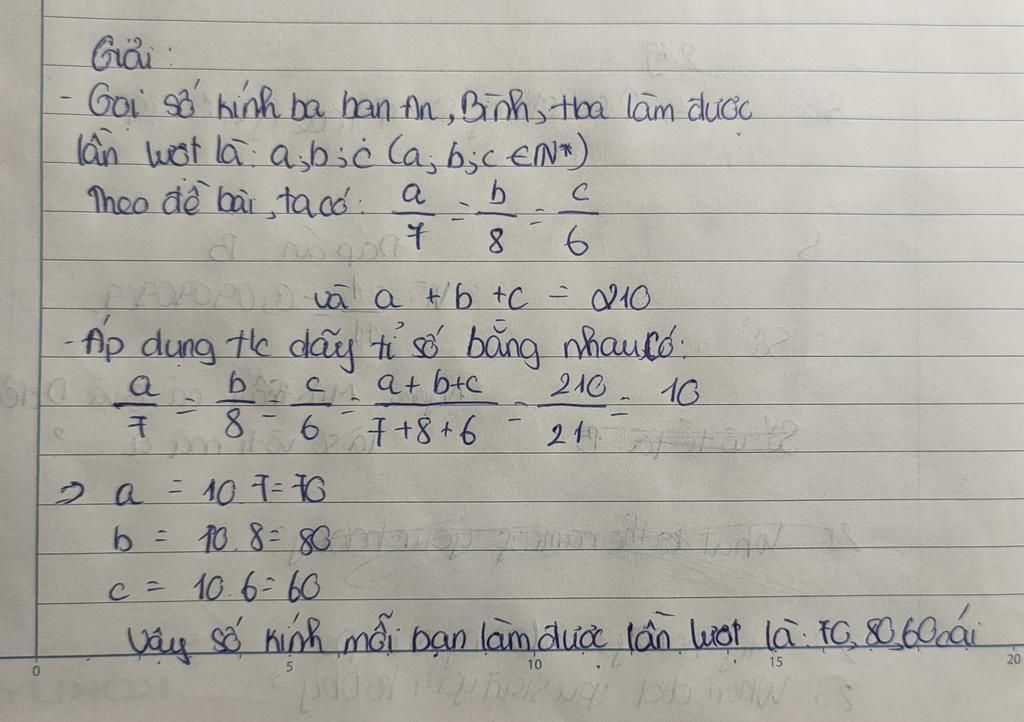 Giải:
- Gọi số kính ba bạn An, Bình, Hoa làm được
lần lượt là: a, b; c (a; b; c ∈ N*)
Theo đề bài, ta có: a/7 = b/8 = c/6
và a + b + c = 210
- Áp dụng t/c dãy tỉ số bằng nhau có:
a/7 = b/8 = c/6 = (a+b+c)/(7+8+6) = 210/21 = 10
=> a = 10.7=70
b = 10.8= 80
c = 10.6= 60
Vậy số kính mỗi bạn làm được lần lượt là: 70, 80, 60 cái
0 5 10 15 20